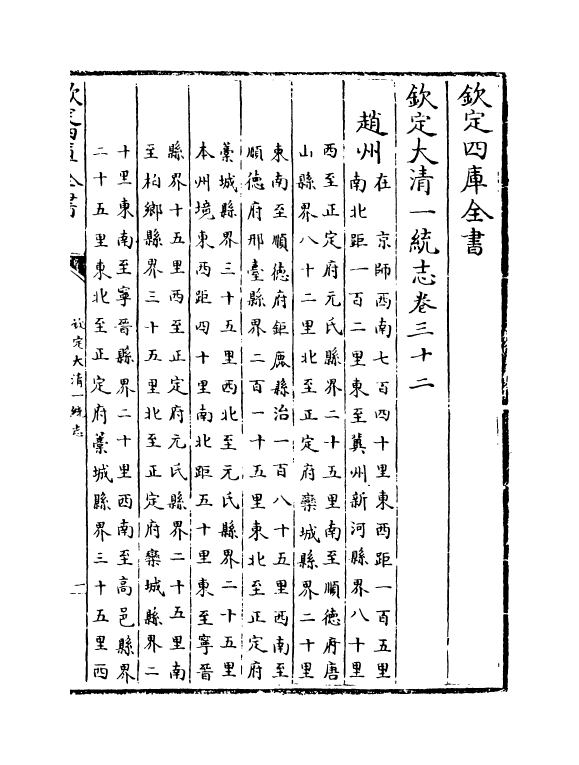 欽定四庫全書
欽定大清一統志卷三十二
趙州在 京師西南七百四十里東西距一百五里
南北距一百二里東至冀州新河縣界八十里
西至正定府元氏縣界二十五里南至順德府唐
山縣界八十二里北至正定府欒城縣界二十里
東南至順德府鉅鹿縣治一百八十五里西南至
順德府邢臺縣界二百一十五里東北至正定府
藁城縣界三十五里西北至元氏縣界二十五里
本州境東西距四十里南北距五十里東至寧晉
縣界十五里西至正定府元氏縣界二十五里南
至柏鄉縣界三十五里北至正定府欒城縣界二
十里東南至寧晉縣界二十里西南至高邑縣界
二十五里東北至正定府藁城縣界三十五里西
欽定四庫全書
欽定大清一統志